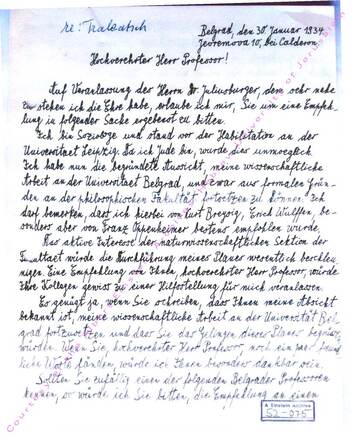 re: Tralatsch
Belgrad, den 30. Januar 1934.
Jevremova 10, bei Calderon.
Hochverehrter Herr Professor!
Auf Veranlassung des Herrn Dr. Juliusburger, dem sehr nahe
zu stehen ich die Ehre habe, erlaube ich mir, Sie um eine Empfeh-
lung in folgender Sache ergebenst zu bitten.
Ich bin Soziologe und stand vor der Habilitation an der
Universitaet Leipzig. Da ich Jude bin, wurde dies unmoeglich.
Ich habe nun die begründete Aussicht, meine wissenschaftliche
Arbeit an der Universitaet Belgrad, und zwar aus formalen Grün-
den an der philosophischen Fakultät fortsetzen zu können. Ich
darf bemerken, dass ich hierbei von Kurt Breysig, Erich Wulffen, be-
sonders aber von Franz Oppenheimer bestens empfohlen wurde.
Das aktive Interesse der naturwissenschaftlichen Sektion der
Facultaet würde die Durchführung meines Planes wesentlich beschleu-
nigen. Eine Empfehlung von Ihnen, hochverehrter Herr Professor, würde
Ihre Kollegen gewiss zu einer Hilfestellung für mich veranlassen.
Es genügt ja, wenn Sie schreiben, dass Ihnen meine Absicht
bekannt ist, meine wissenschaftliche Arbeit an der Universität Bel-
grad fortzusetzen und dass Sie das Gelingen dieses Planes begrüssen
würden. Wenn Sie, hochverehrter Herr Professor, noch ein paar freund-
liche Worte fänden, würde ich Ihnen besonders dankbar sein.
Sollten Sie zufällig einen der folgenden Belgrader Professoren
kennen, so würde ich Sie bitten, die Empfehlung an einen
A. Einstein Archives
52-075